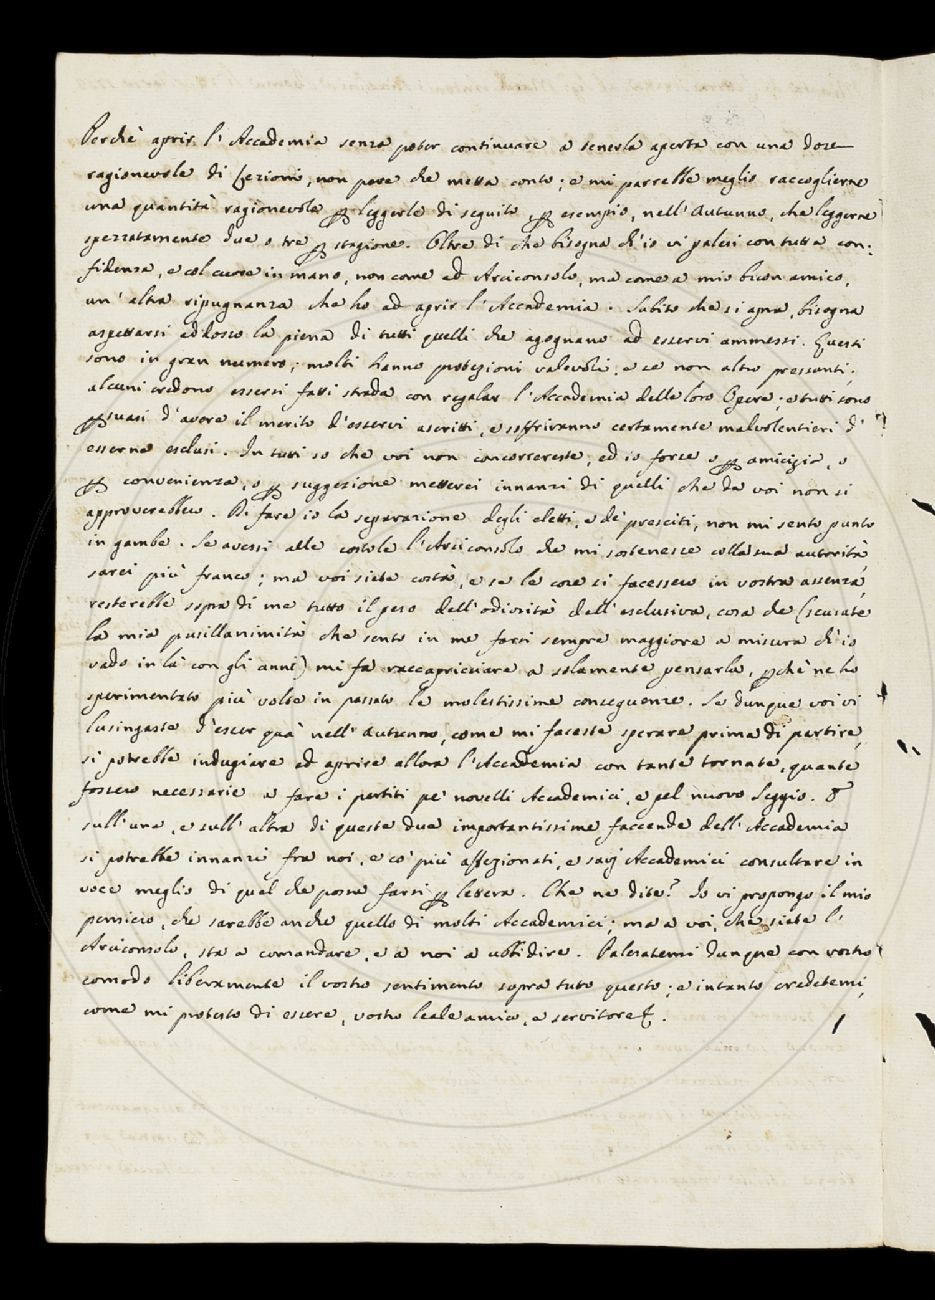 Perchè aprir l'Accademia senza poter continuare a tenerla aperta con una dose
ragionevole di Lezioni, non pare che metta conto; e mi parrebbe meglio raccoglierne
una quantità ragionevole p leggerle di seguito, p esempio, nell'Autunno, che leggerne
spezzatamente due o tre p stagione. Oltre di che bisogna ch'io vi palesi con tutta con-
fidenza, e col cuore in mano, non come ad Arciconsolo, ma come a mio buon amico,
un'altra ripugnanza che ho ad aprir l'Accademia. Subito che si apra, bisogna
aspettarsi addosso la piena di tutti quelli che agognano ad esservi ammessi. Questi
sono in gran numero; molti hanno protezioni valevoli, e se non altro pressanti;
alcuni credono essersi fatti strada con regalar l'Accademia delle loro Opere; e tutti sono
psuasi d'avere il merito d'esservi ascritti, e soffriranno certamente malvolentieri d'
esserne esclusi. In tutti so che voi non concorrereste; ed io forse o p amicizia, o
p convenienza, o p suggezione metterei innanzi di quelli che da voi non si
approverebbero. Di fare io la separazione degli eletti, e de' presciti, non mi sento punto
in gambe. Se avessi alle costole l'Arciconsolo che mi sostenesse colla sua autorità,
sarei più franco; ma voi siete costà, e se le cose si facessero in vostra assenza,
resterebbe sopra di me tutto il peso dell'odiosità dell'esclusiva, cosa che (scusate
la mia pusillanimità che sento in me farsi sempre maggiore a misura ch'io
vado in là con gli anni) mi fa raccapricciare a solamente pensarla, pchè ne ho
sperimentato più volte in passato le molestissime conseguenze. Se dunque voi vi
lusingaste d'esser quà nell'Autunno, come mi faceste sperare prima di partire,
si potrebbe indugiare ad aprire allora l'Accademia con tante tornate, quante
fossero necessarie a fare i partiti pe' novelli Accademici, e pel nuovo Seggio. E
sull'una, e sull'altra di queste due importantissime faccende dell'Accademia
si potrebbe innanzi fra noi, e co' più affezionati, e savj Accademici consultare in
voce meglio di quel che possa farsi p lettera. Che ne dite? Io vi propongo il mio
pensiero, che sarebbe anche quello di molti Accademici; ma a voi, che siete l'
Arciconsolo, sta a comandare, e a noi a ubbidire. Palesatemi dunque con vostro
comodo liberamente il vostro sentimento sopra tutto questo; e intanto credetemi,
come mi protesto di essere, vostro leale amico, e servitore